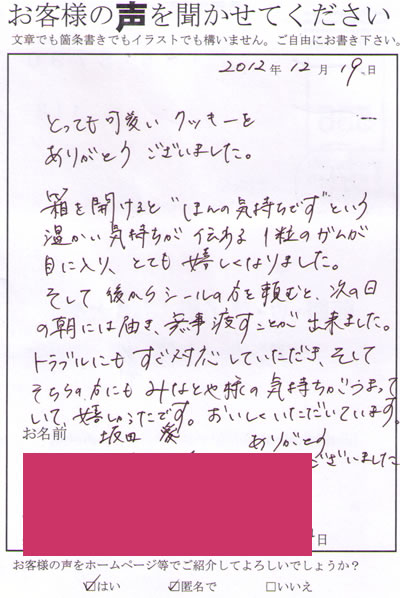 お客様の声を聞かせてください
文章でも箇条書きでもイラストでも構いません。ご自由にお書き下さい。
2012年 12月 19日
とっても可愛い クッキーを
ありがとう ございました。
箱を開けると "ほんの気持ちです"という
温かい気持ちが 伝わる 1粒のガムが
目に入り、とても 嬉しくなりました。
そして 後からシールの方を頼むと、次の日
の朝には届き、無事渡すことが 出来ました。
トラブルにも すぐ対応していただき、そして
そちらの方にも みなとや様の 気持ちがつまって
いて、嬉しかったです。おいしくいただいています。
お名前 坂田
ありがとう
ございました
日
お客様の声をホームページ等でご紹介してよろしいでしょうか?
☑はい ☑匿名で □いいえ